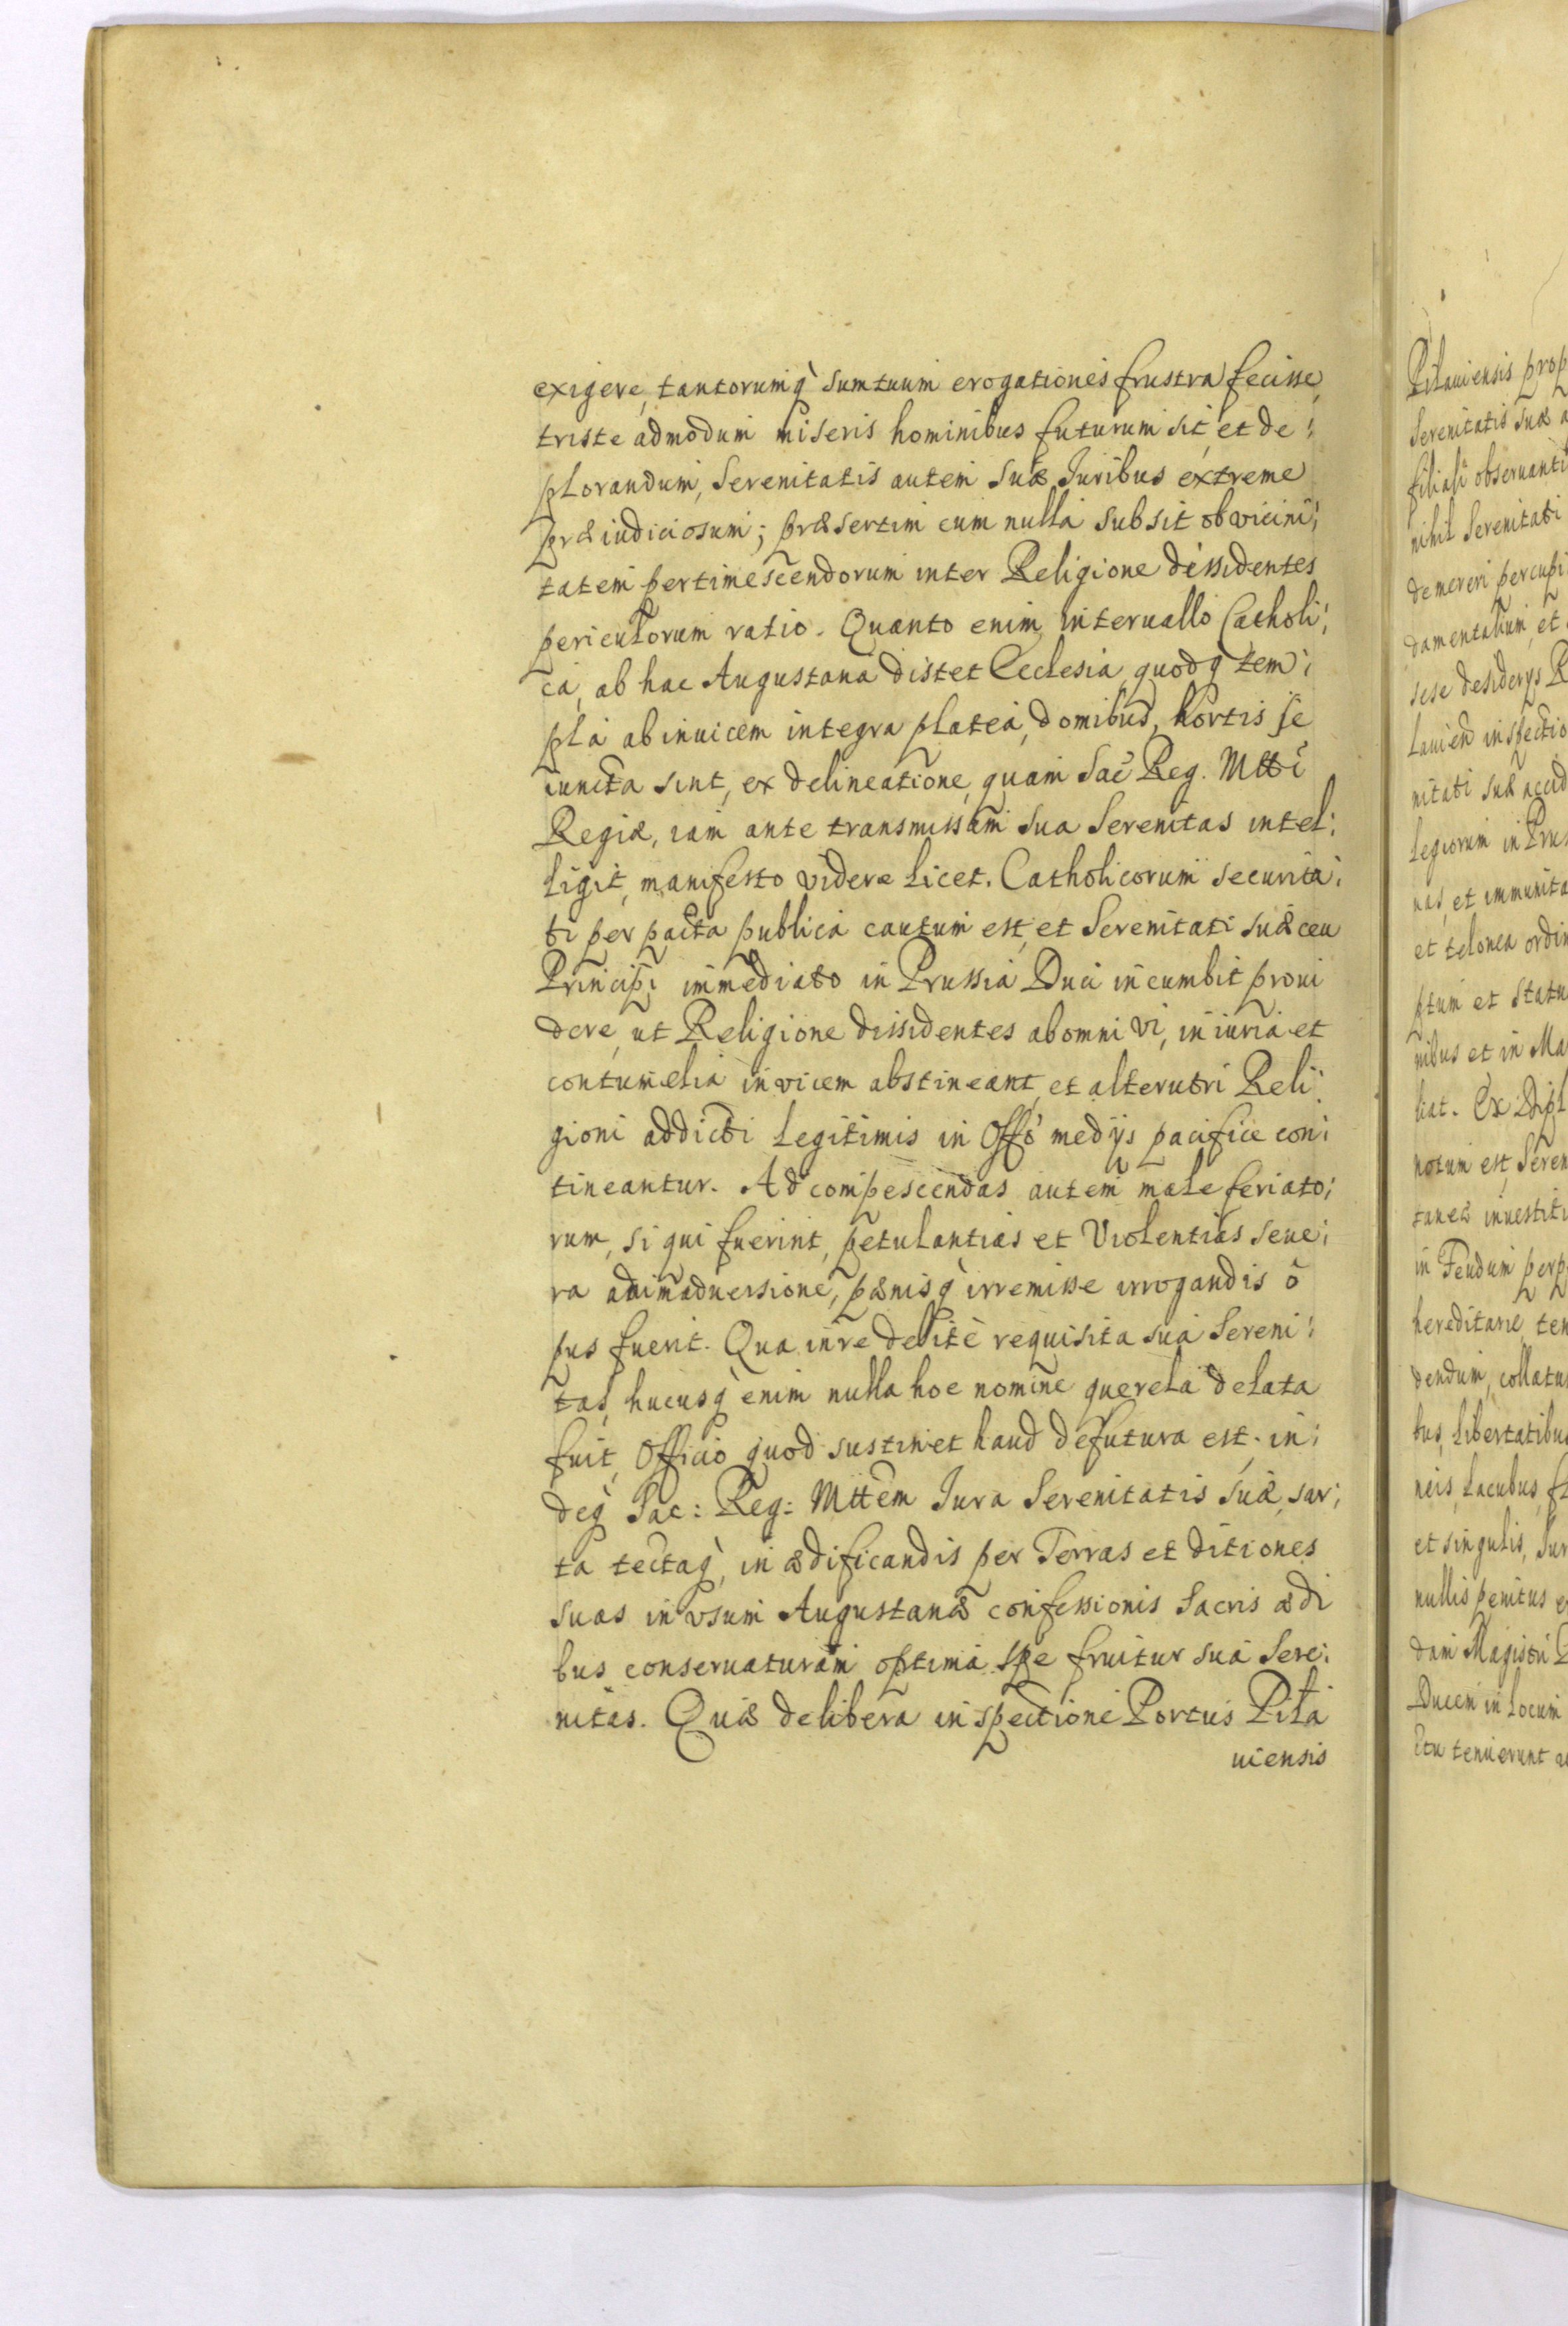 exigere, tantorumq̀ sumtuum erogationes frustra fecisse,
triste admodum miseris hominibus futurum sit, et de:
plorandum, Serenitatis autem suæ Juribus extreme
præiudiciosum; præsertim cum nulla subsit ob vicini:
tatem pertimescendorum inter Religione dissidentes
periculorum ratio. Quanto enim interuallo Catholi:
ca, ab hac Augustana distet Ecclesia, quodq tem:
pla ab inuicem integra platea, domibus, hortis se
iuncta sint, ex delineatione, quam Sac̃ Reg. Mtti
Regiæ, iam ante transmissam sua Serenitas intel:
ligit, manifesto videre licet. Catholicorum securita:
ti per pacta publica cautum est, et Serenitati suæ ceu
Principi immediato in Prussia Duci incumbit proui
dere, ut Religione dissidentes ab omni vi, iniuria et
contumelia invicem abstineant, et alterutri Reli:
gioni addicti legitimis in Offo medijs pacifice con:
tineantur. Ad compescendas autem male feriato:
rum, si qui fuerint, petulantias et Violentias seue:
ra animaduersione, pænisq̀ irremisse irrogandis o
pus fuerit. Qua in re debite requisita sua Sereni:
tas, hucusq̀ enim nulla hoc nomine querela delata
fuit, Officio quod sustinet haud defutura est, in:
deq̀ Sac: Reg: Mttem Jura Serenitatis suæ, sar:
ta tectaq̀, in ædificandis per Terras et ditiones
suas in vsum Augustanæ confessionis Sacris ædi
bus conseruaturam optima spe fruitur sua Sere:
nitas. Quæ de libera inspectione Portus Pila
uiensis
Pilauiensis
Serenitatis suæ
filiali
nihil Serenitati
demereri
damentalium, et
sese desiderijs
nitati suæ
legiorum in
nas, et
et telonea
ptum et
nibus et in
liat. Ex
notum est,
taneæ
in Feudum
hereditarie
dendum,
bus, libertatibus
neis, lacubus,
et singulis,
nullis penitus
dam Magistri
Ducem in locum
tenuerunt